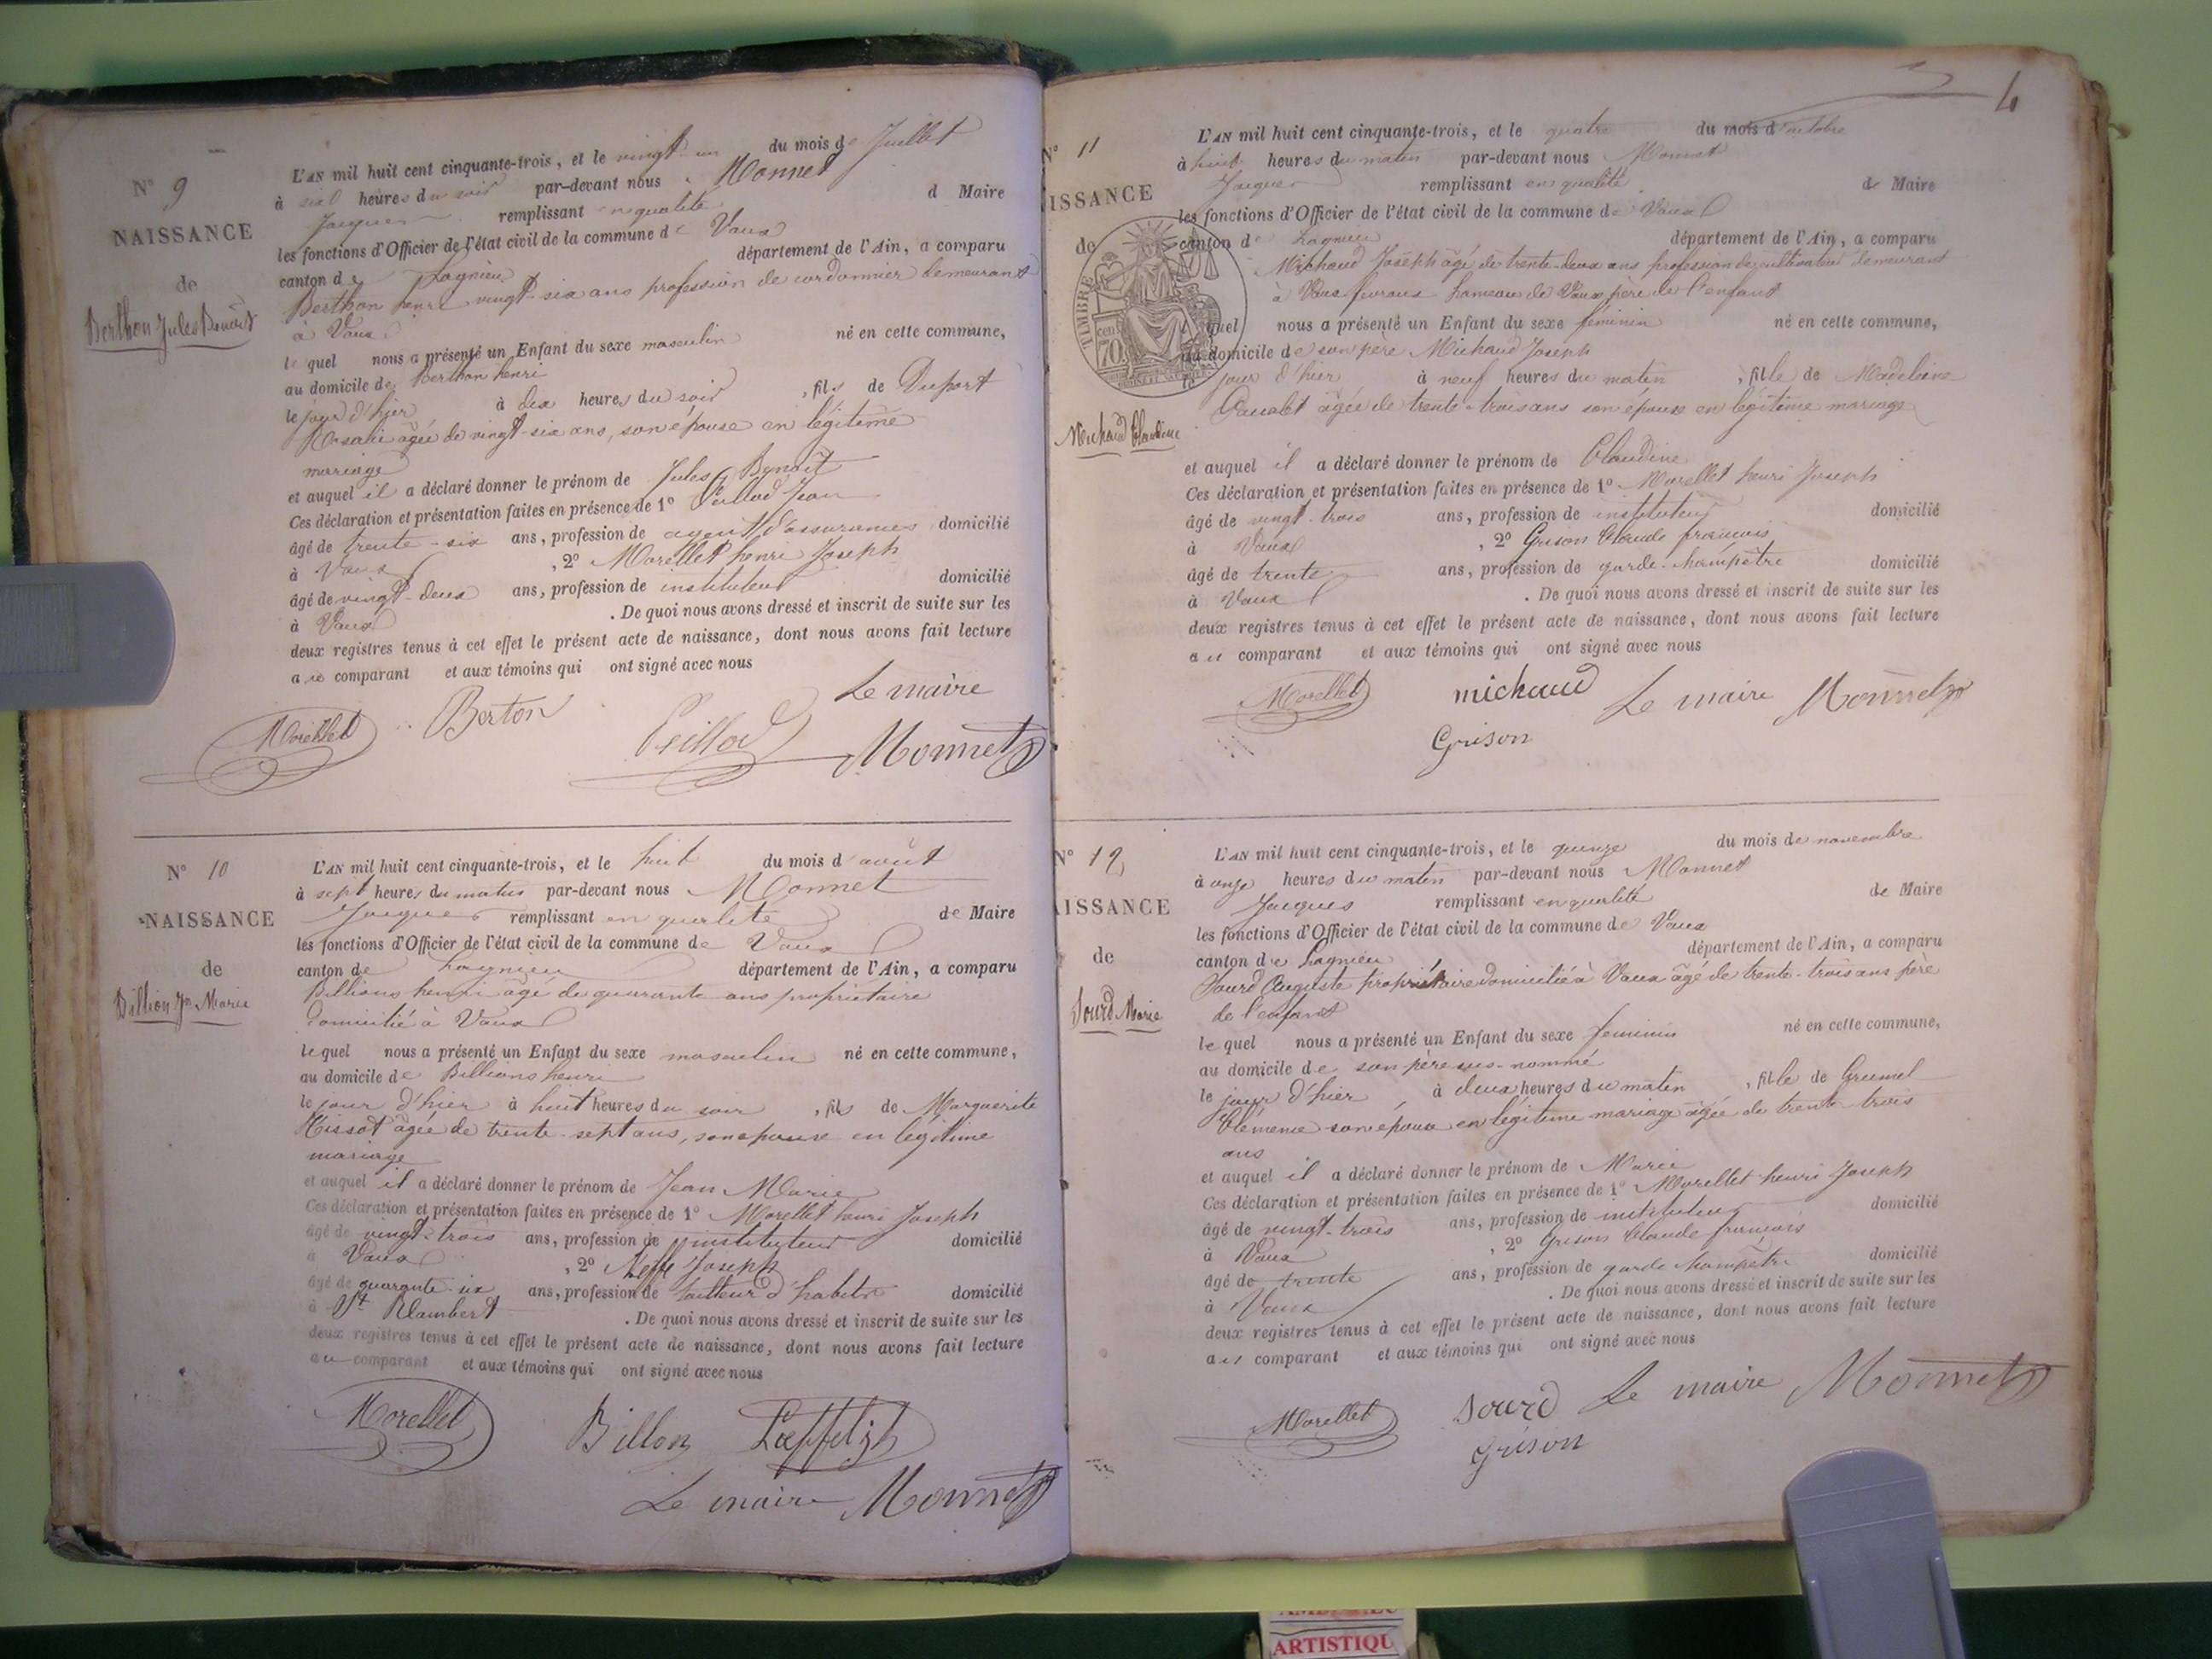 N° 9
NAISSANCE
de
Berthon Jules Benoît
L'AN mil huit cent cinquante-trois, et le vingt-un du mois de Juillet
à six heures du soir par-devant nous Monnet
Jacques remplissant en qualité d Maire
les fonctions d'Officier de l'état civil de la commune de Vaux
canton de Lagnieu département de l'Ain, a comparu
Berthon henri vingt-six ans profession de cordonnier demeurant
à Vaux
lequel nous a présenté un Enfant du sexe masculin né en cette commune,
au domicile de Berthon henri
le jour d'hier à dix heures du soir , fils de Duport
Rosalie âgée de vingt-six ans, son épouse en légitime
mariage
et auquel il a déclaré donner le prénom de Jules Benoît
Ces déclaration et présentation faites en présence de 1° Peillod Jean
âgé de trente-six ans, profession de agent d'assurances domicilié
à Vaux , 2° Morellet henri Joseph
âgé de vingt-deux ans, profession de instituteur domicilié
à Vaux . De quoi nous avons dressé et inscrit de suite sur les
deux registres tenus à cet effet le présent acte de naissance, dont nous avons fait lecture
au comparant et aux témoins qui ont signé avec nous
Le maire
Morellet Berton Peillod Monnet
N° 10
NAISSANCE
de
Billion Jn Marie
L'AN mil huit cent cinquante-trois, et le huit du mois d'août
à sept heures du matin par-devant nous Monnet
Jacques remplissant en qualité de Maire
les fonctions d'Officier de l'état civil de la commune de Vaux
canton de Lagnieu département de l'Ain, a comparu
Billions henri âgé de quarante ans propriétaire
domicilié à Vaux
lequel nous a présenté un Enfant du sexe masculin né en cette commune,
au domicile de Billions henri
le jour d'hier à huit heures du soir , fils de Marguerite
Kissot âgée de trente-sept ans, son épouse en légitime
mariage
et auquel il a déclaré donner le prénom de Jean Marie
Ces déclaration et présentation faites en présence de 1° Morellet henri Joseph
âgé de vingt-trois ans, profession de instituteur domicilié
à Vaux , 2° Joseph
âgé de quarante-six ans, profession de tailleur d'habits domicilié
à St Rambert . De quoi nous avons dressé et inscrit de suite sur les
deux registres tenus à cet effet le présent acte de naissance, dont nous avons fait lecture
au comparant et aux témoins qui ont signé avec nous
Morellet Billon
Le maire Monnet
4
N° 11
ISSANCE
de
Michaud Claudine
TIMBRE
cent
70
L'AN mil huit cent cinquante-trois, et le quatre du mois d'octobre
à huit heures du matin par-devant nous Monnet
Jacques remplissant en qualité de Maire
les fonctions d'Officier de l'état civil de la commune de Vaux
canton de Lagnieu département de l'Ain, a comparu
Michaud Joseph âgé de trente-deux ans profession de cultivateur demeurant
à Vaux fevroux hameau de Vaux père de l'enfant
lequel nous a présenté un Enfant du sexe féminin né en cette commune,
au domicile de son père Michaud Joseph
le jour d'hier à neuf heures du matin , fille de Madeleine
Pascalet âgée de trente-trois ans son épouse en légitime mariage
et auquel il a déclaré donner le prénom de Claudine
Ces déclaration et présentation faites en présence de 1° Morellet henri Joseph
âgé de vingt-trois ans, profession de instituteur domicilié
à Vaux , 2° Grison Claude françois
âgé de trente ans, profession de garde-champêtre domicilié
à Vaux . De quoi nous avons dressé et inscrit de suite sur les
deux registres tenus à cet effet le présent acte de naissance, dont nous avons fait lecture
au comparant et aux témoins qui ont signé avec nous
Morellet michaud Le maire Monnet
Grison
N° 12
AISSANCE
de
Sourd Marie
L'AN mil huit cent cinquante-trois, et le quinze du mois de novembre
à onze heures du matin par-devant nous Monnet
Jacques remplissant en qualité de Maire
les fonctions d'Officier de l'état civil de la commune de Vaux
canton de Lagnieu département de l'Ain, a comparu
Sourd Auguste propriétaire domicilié à Vaux âgé de trente-trois ans père
de l'enfant
lequel nous a présenté un Enfant du sexe féminin né en cette commune,
au domicile de son père sus-nommé
le jour d'hier à deux heures du matin , fille de Grumel
Clémence son épouse en légitime mariage âgée de trente-trois
ans
et auquel il a déclaré donner le prénom de Marie
Ces déclaration et présentation faites en présence de 1° Morellet henri Joseph
âgé de vingt-trois ans, profession de instituteur domicilié
à Vaux , 2° Grison Claude françois
âgé de trente ans, profession de garde champêtre domicilié
à Vaux . De quoi nous avons dressé et inscrit de suite sur les
deux registres tenus à cet effet le présent acte de naissance, dont nous avons fait lecture
au comparant et aux témoins qui ont signé avec nous
Morellet Sourd Le maire Monnet
Grison
ARTISTIQU